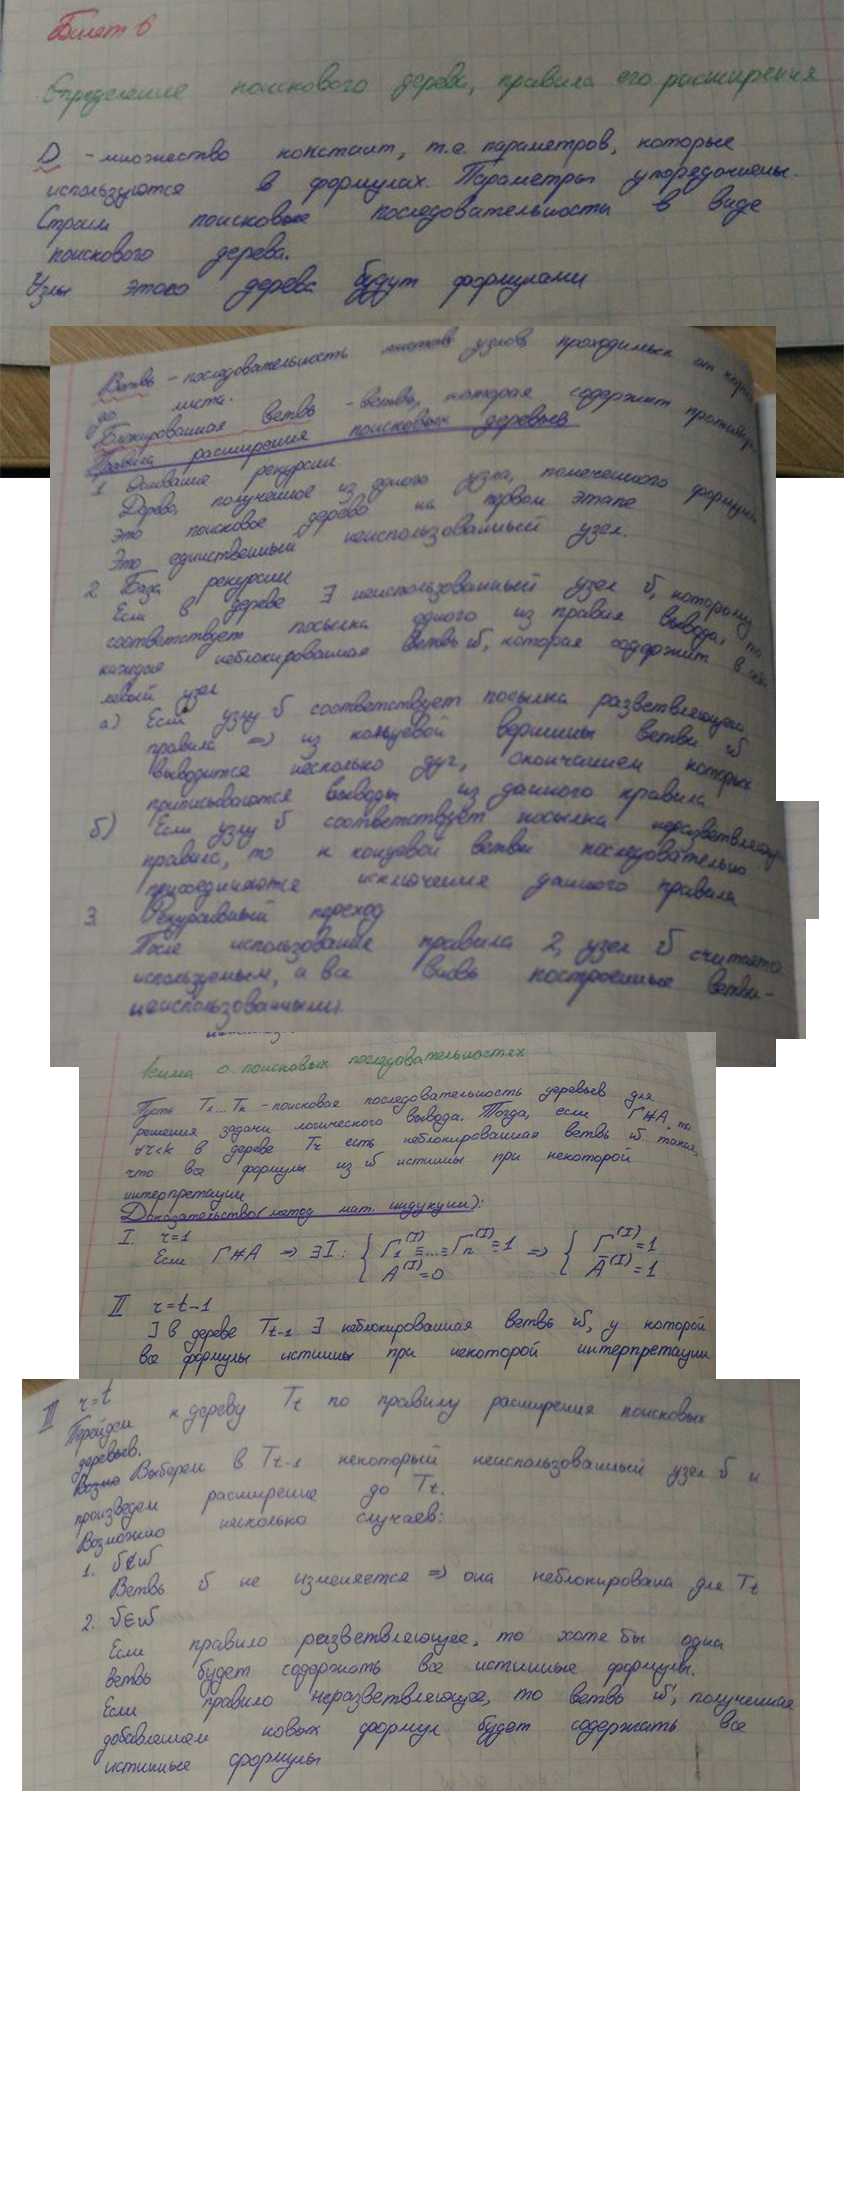 Билет 6
Определение поискового дерева, правила его расширения
D - множество констант, т.е. параметров, которые
используются в формулах. Параметры упорядочены.
Строим поисковые последовательности в виде
поискового дерева.
Узлы этого дерева будут формулами
Ветвь - последовательность узлов, проходимых от
до листа.
Блокированная ветвь - ветвь, которая содержит
Правила расширения поисковых деревьев
1. Основание рекурсии
Дерево, полученное из одного узла, помеченного
это поисковое дерево на первом этапе
Это единственный неиспользованный узел.
2. База рекурсии
Если в дереве ∃ неиспользованный узел б, которому
соответствует посылка одного из правил вывода, то
каждая неблокированная ветвь w, которая содержит в
левый узел
а) Если узлу б соответствует посылка разветвляющего
правила => из концевой вершины ветви w
выводится несколько дуг, окончанием которых
приписываются выводы из данного правила
б) Если узлу б соответствует посылка неразветвляющ
правила, то к концевой ветви последовательно
присоединяются исключения данного правила
3. Рекурсивный переход
После использования правила 2, узел б считается
используемым, а все вновь построенные ветви -
неиспользованными.
о поисковых последовательностях
Пусть T₁...Tₖ - поисковая последовательность деревьев для
решения задачи логического вывода. Тогда, если Г⊭A, то
∀r<k в дереве Tr есть неблокированная ветвь w такая,
что все формулы из w истины при некоторой
интерпретации
Доказательство (метод мат. индукции):
I. r=1
Если Г⊭A => ∃I: { Г₁^(I) ≡...≡ Гn^(I) = 1 => { Г^(I) = 1
A^(I) = 0 Ā^(I) = 1
II r=t-1
∃ в дереве Tt-1 ∃ неблокированная ветвь w, у которой
все формулы истины при некоторой интерпретации
III r=t
Перейдем к дереву Tt по правилу расширения поисковых
деревьев.
Выберем в Tt-1 некоторый неиспользованный узел б и
произведем расширение до Tt.
Возможно несколько случаев:
1. б∉w
Ветвь б не изменяется => она неблокирована для Tt
2. б∈w
Если правило разветвляющее, то хотя бы одна
ветвь будет содержать все истинные формулы.
Если правило неразветвляющее, то ветвь w, полученная
добавлением новых формул будет содержать все
истинные формулы